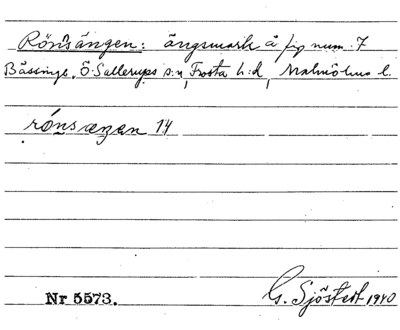 Rönsängen: ängsmark å fig num. 7
Bässinge, Ö. Sallerups s:n, Frosta h:d, Malmöhus l.
rónsæŋen 14
Nr 5573.
G. Sjöstedt 1940